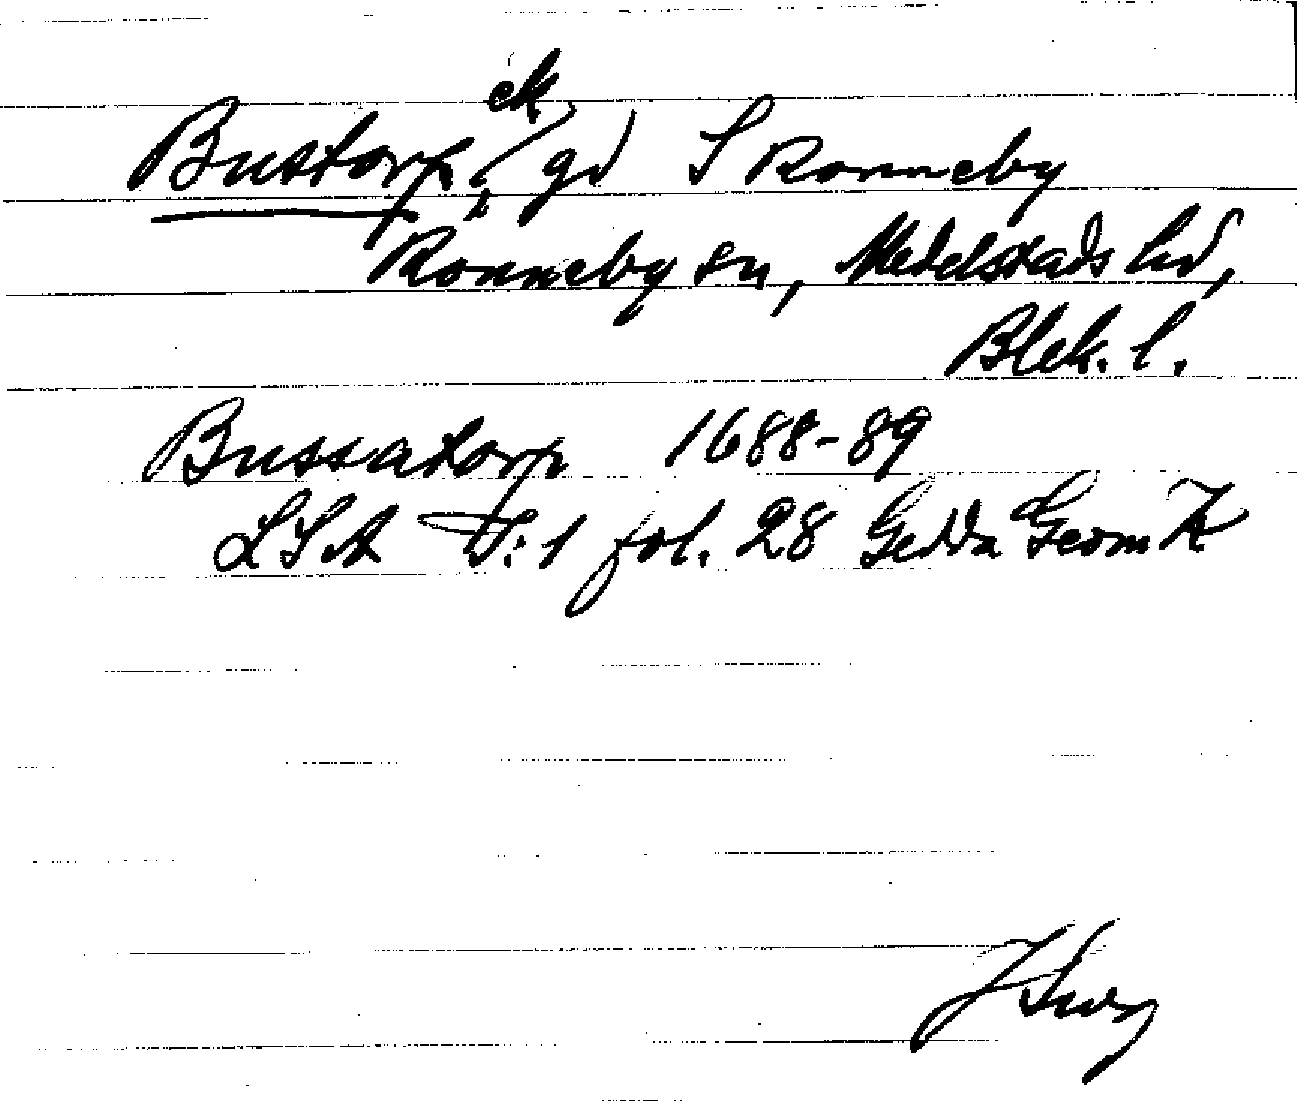 Bustorp, ek gd S Ronneby
Ronneby sn, Medelstads hd,
Blek. l.
Bussatorp 1688-89
LSA :1 fol. 28 Gedda Geom K